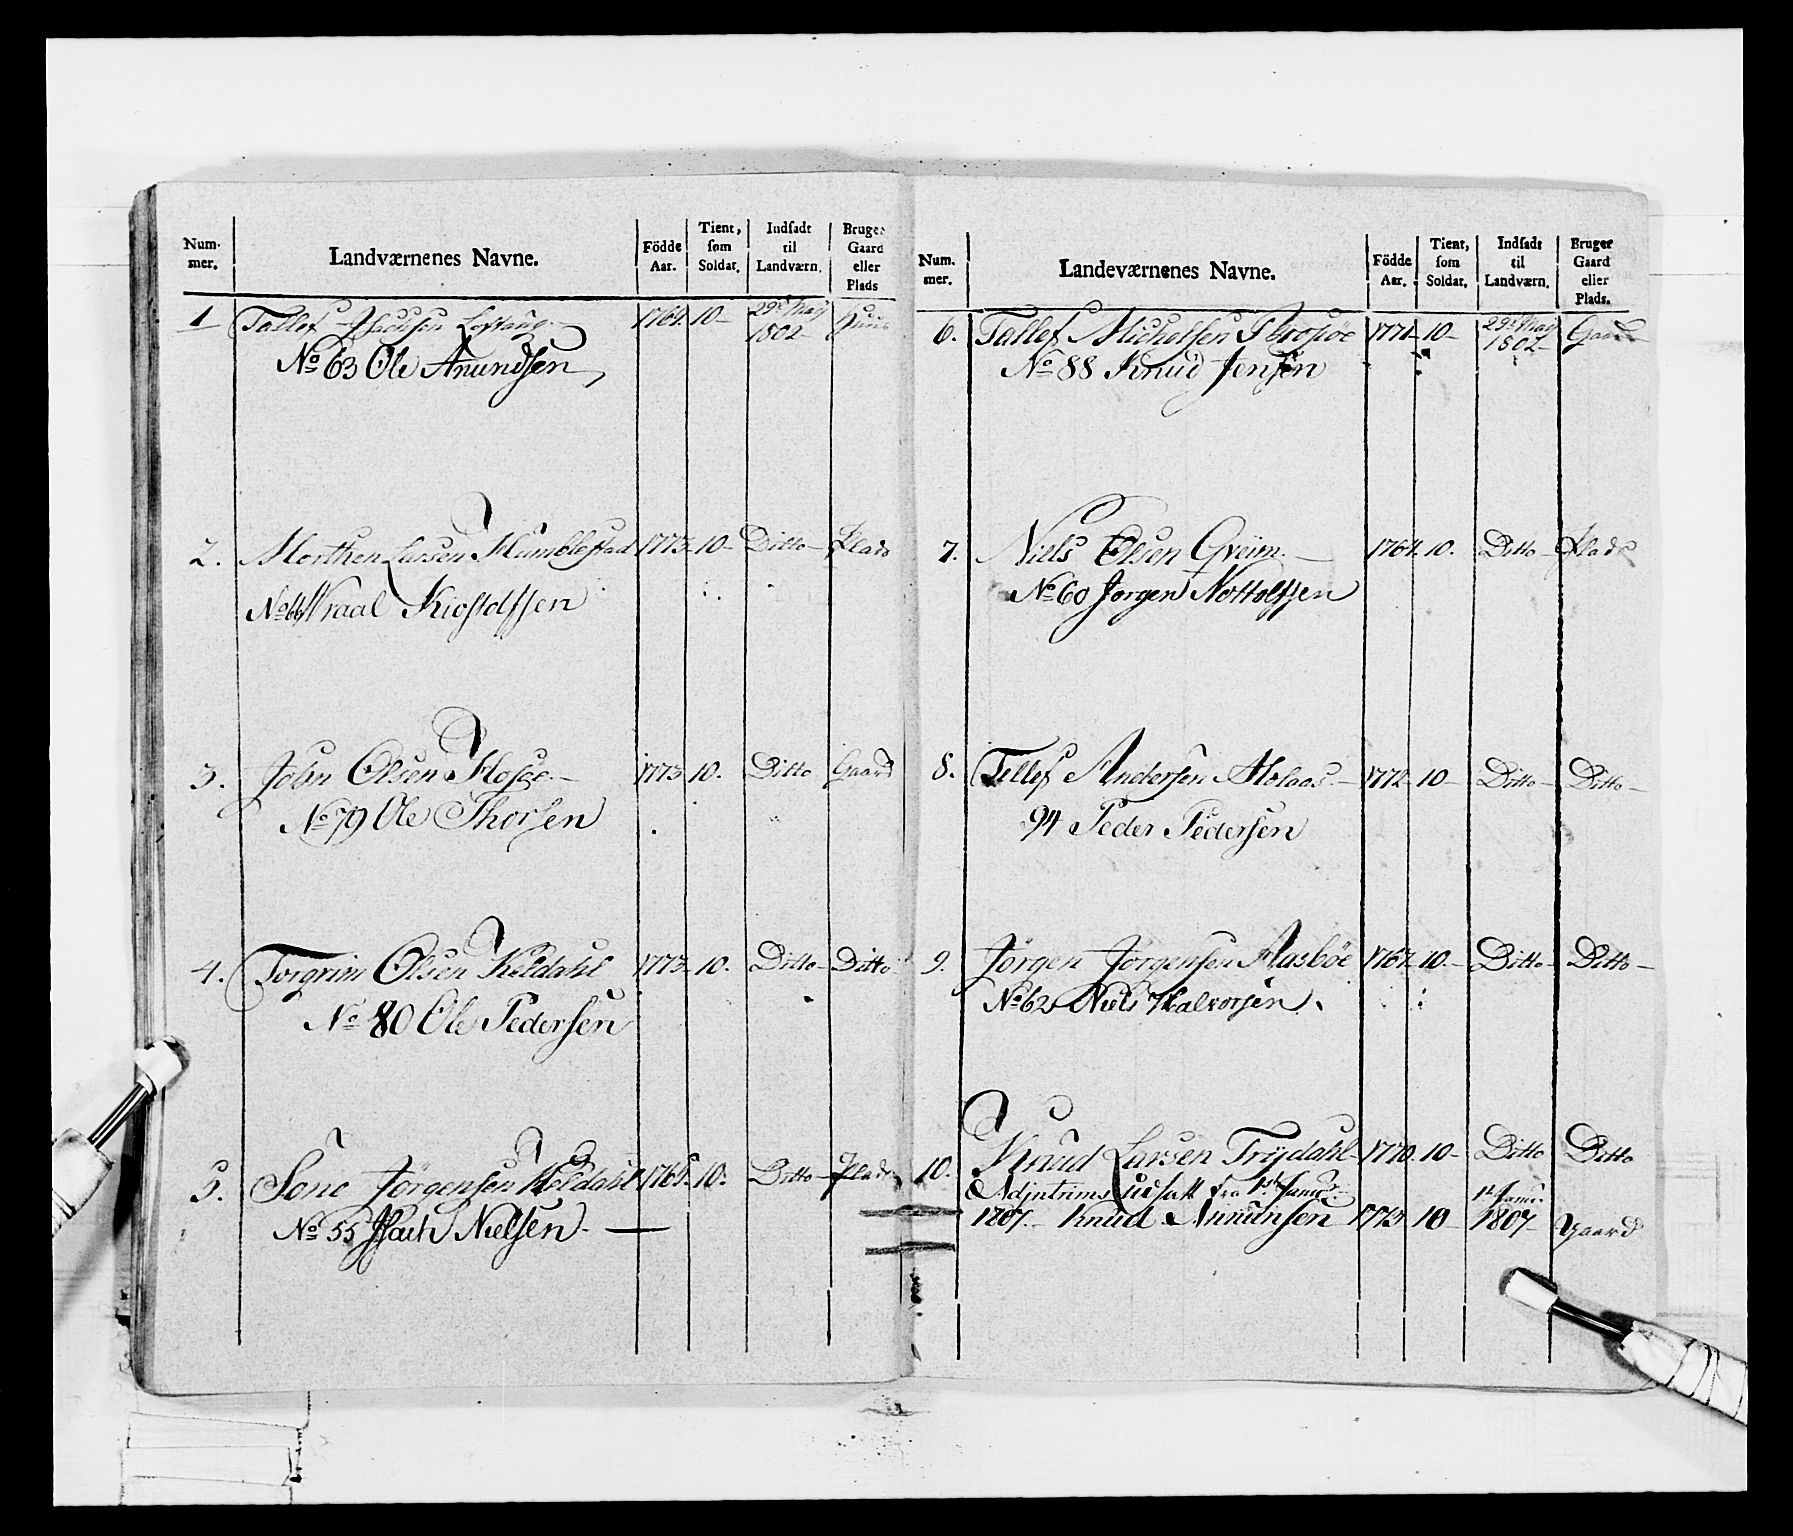 Num-mer. Landværnenes Navne. Födde Aar. Tient, som Soldat. Indsadt til Landværn. Bruger Gaard eller Plads
1 Tallef 1769. 10- 29de May 1802-
No 63 Ole Anundsen
2. Morthen Larsen Humblestad 1773. 10- Ditto- Plads
No 66 Wraal Kiostolfsen
3. John Olsen 1773 10. Ditto Gaard
No 79 Ole Thorsen
4. Torgrim Olsen Keldahl 1773. 10. Ditto- Ditto
No 80 Ole Pedersen
5. Sone Jörgensen Keldahl 1765. 10. Ditto- Plads
No 55 Isach Nielsen-
Num-mer. Landeværnenes Navne. Födde Aar. Tient, som Soldat. Indsadt til Landværn. Bruger Gaard eller Plads.
6. Tallef Michelsen 1771- 10- 29de May 1802- Gaard
No 88 Knud Jensen
7. Niels Olsen Greim- 1764. 10. Ditto- Plads
No 60 Jörgen Nottolfsen
8. Tellef Andersen 1772- 10- Ditto- Ditto-
94 Peder Pedersen
9. Jörgen Jörgensen Aasböe 1767. 10.- Ditto- Ditto-
No 62 Niels Halvorsen.
10. Knud Larsen Trydahl- 1770. 10- Ditto Ditto
Adjntrims Udsatt fra 1ste Janur.
1807.- Knud Anunsen 1773. 10- 1st Janu. 1807- Gaard